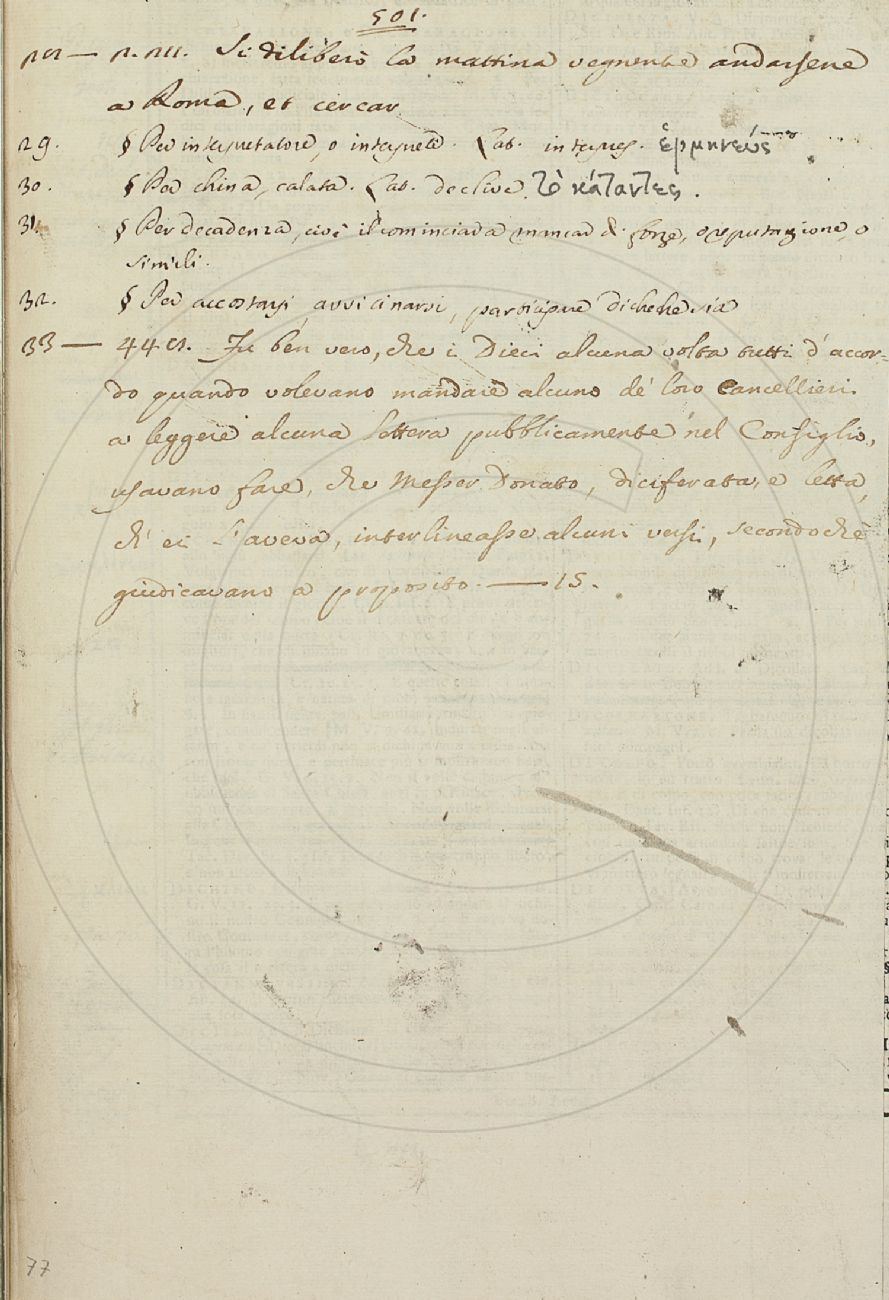 501.
Si diliberò la mattina vegnente andarsene
a Roma, et cercar
29. § Per interpretatore, o interprete. Lat. interpres. ἑρμηνεύς
30. § Per china, calata. Lat. declive. τὸ κάταντες.
31. § Per decadenza, cioè il cominciar a mancar di forze, o reputazione, o
simili.
32. § Per accostarsi, avvicinarsi, participare di chechesia
33 — 44 Fu ben vero, che i Dieci alcuna volta tutti d'accor-
do quando volevano mandare alcuno de' loro Cancellieri
a leggere alcuna lettera pubblicamente nel Consiglio,
usavano fare, che Messer Donato, diciferata, e letta,
ch' ei l'aveva, interlineasse alcuni versi, secondochè
giudicavano a proposito. — 15.
77